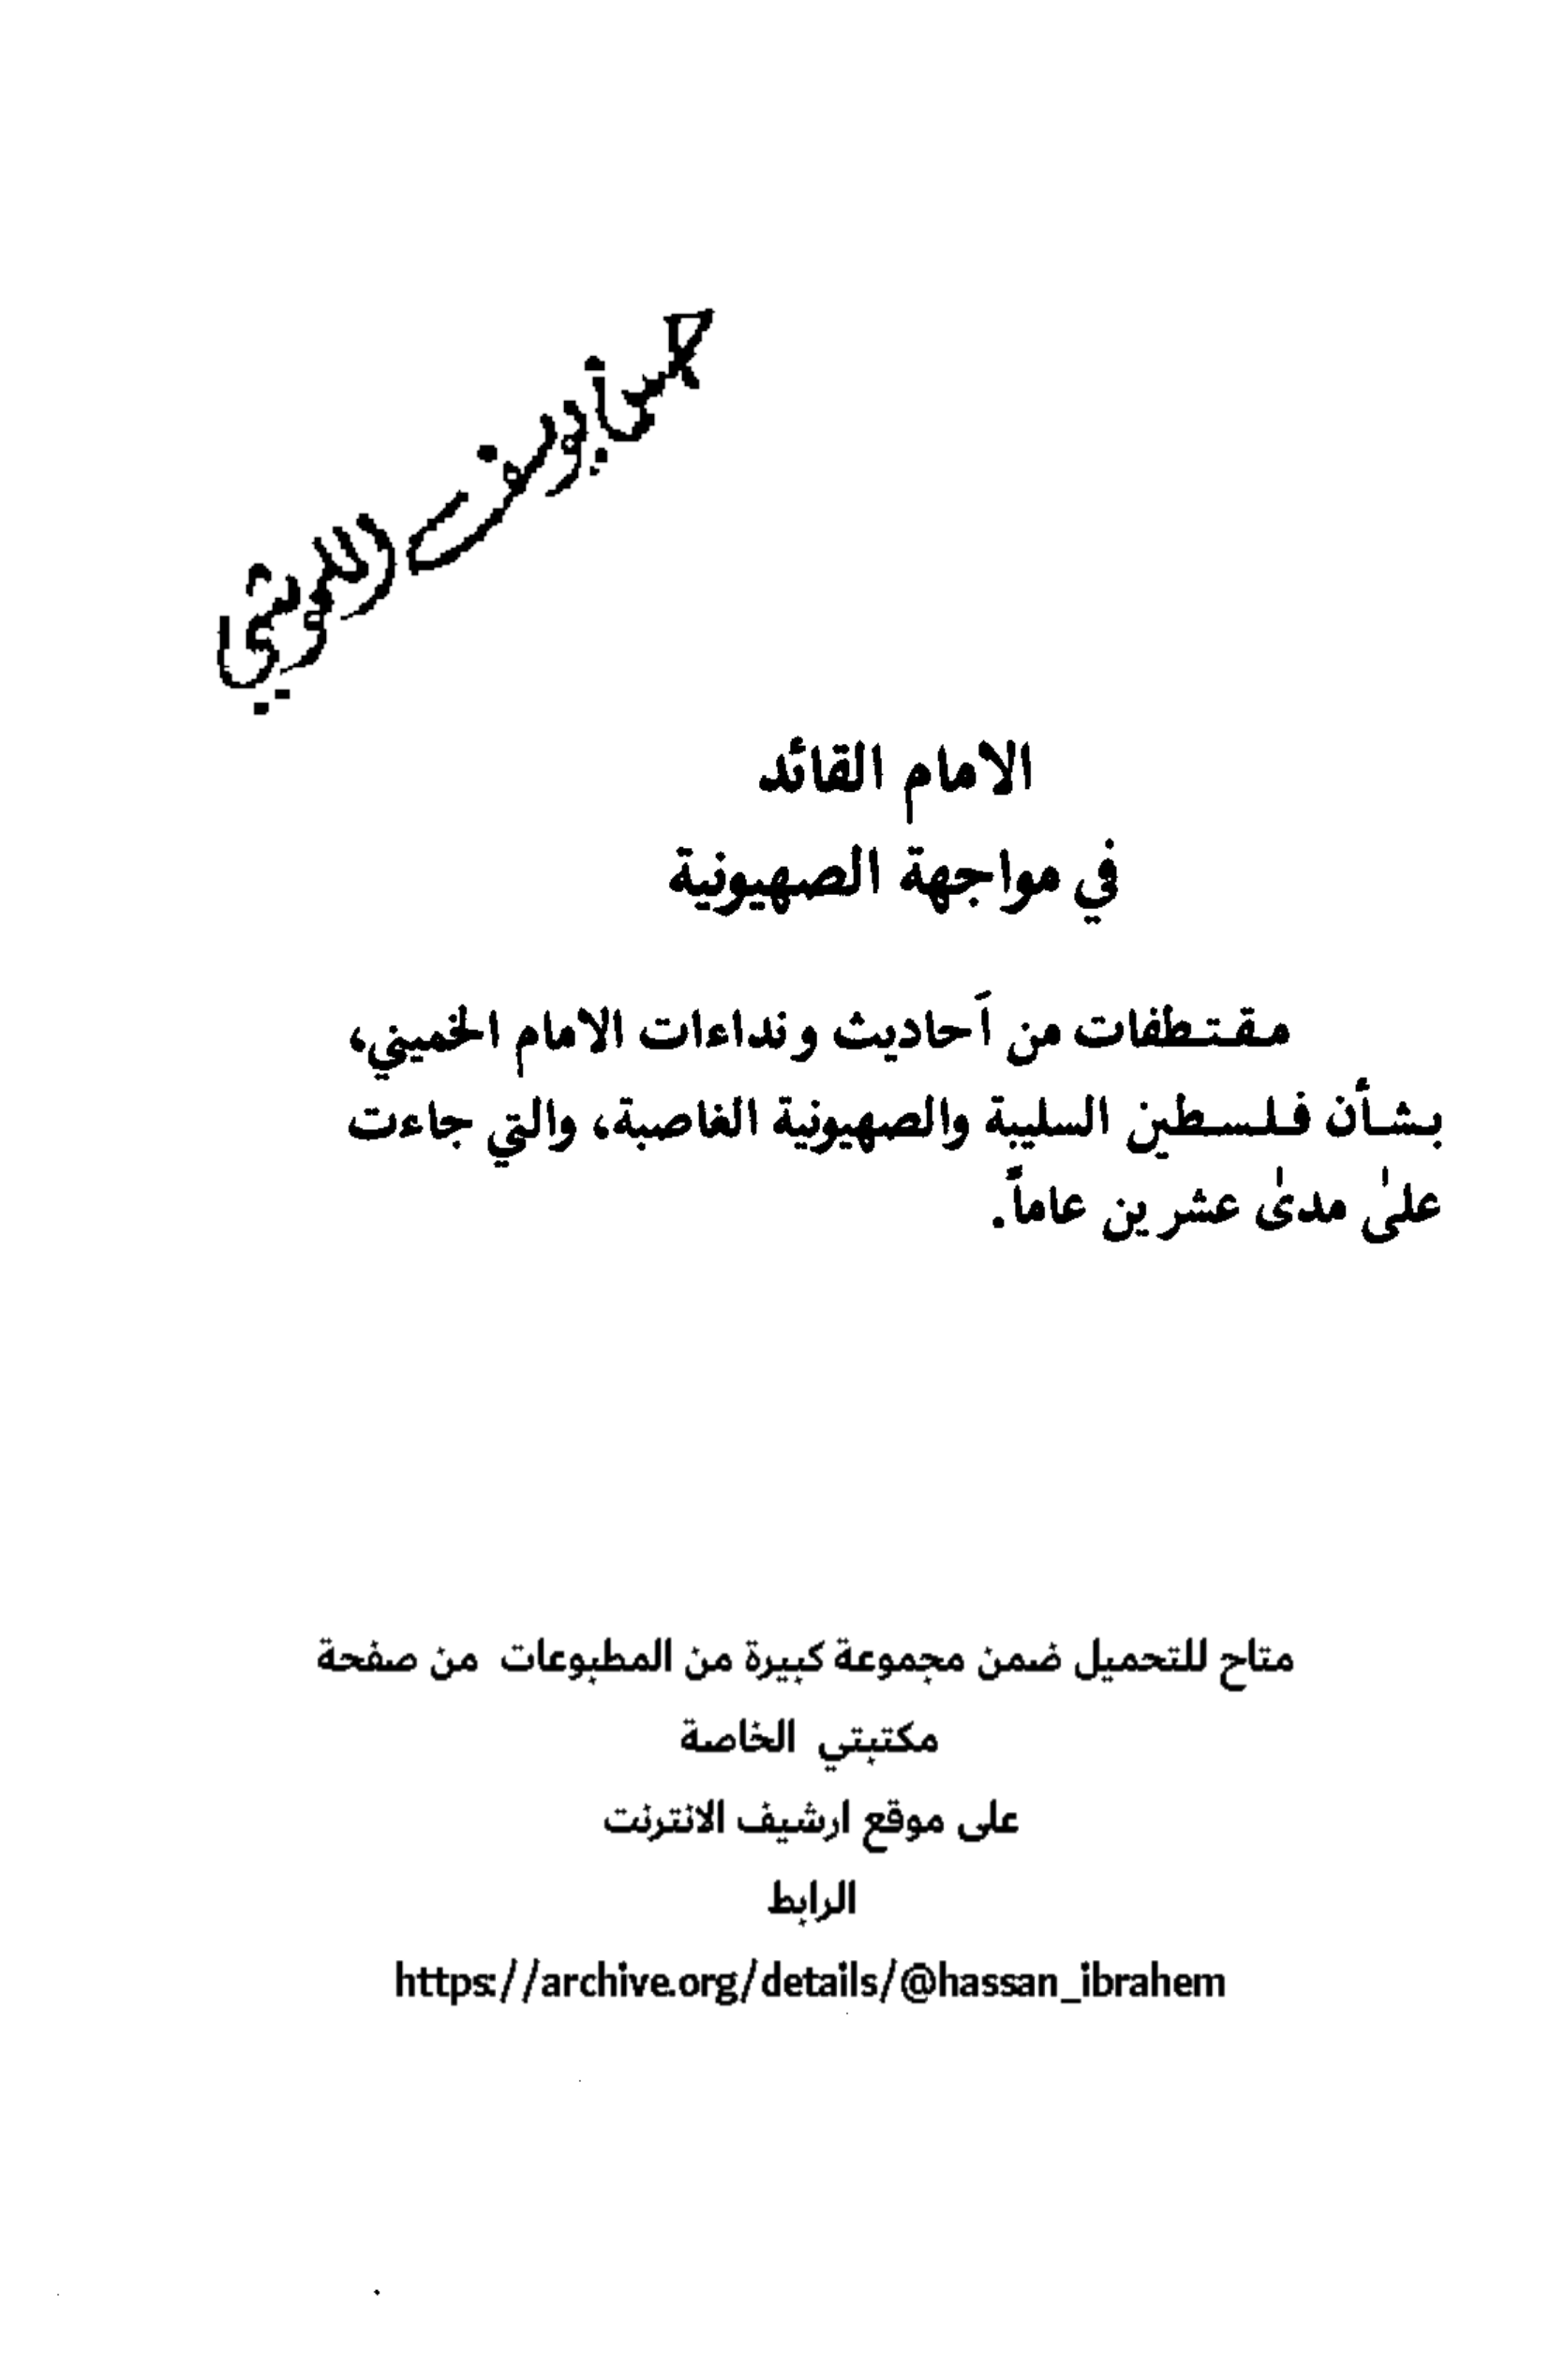 الامام القائد
في مواجهة الصهيونية
مقتطفات من أحاديث ونداءات الامام الخميني،
بشأن فلسطين السليبة والصهيونية الغاصبة، والتي جاءت
علىٰ مدىٰ عشرين عاماً.
متاح للتحميل ضمن مجموعة كبيرة من المطبوعات من صفحة
مكتبتي الخاصة
على موقع ارشيف الانترنت
الرابط
https://archive.org/details/@hassan_ibrahem